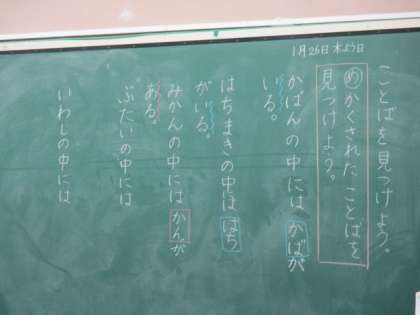 1月26日木よう日
ことばを見つけよう。
めかくされたことばを
見つけよう。
かばんの中にはかばが
いる。
はちまきの中ははち
がいる。
みかんの中にはかんが
ある。
ぶたいの中には
いわしの中には